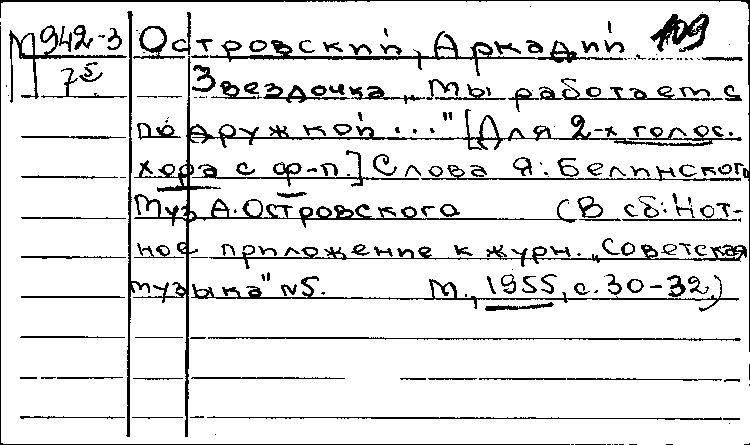 М 942-3 Островский, Аркадий. 109
75 Звездочка „Мы работаем с
подружкой..." [Для 2-х голос.
хора с ф-п.] Слова Я. Белинского
Муз. А. Островского (В сб: Нот-
ное приложение к журн. „Советская
музыка" №5. М., 1955, с. 30-32.)